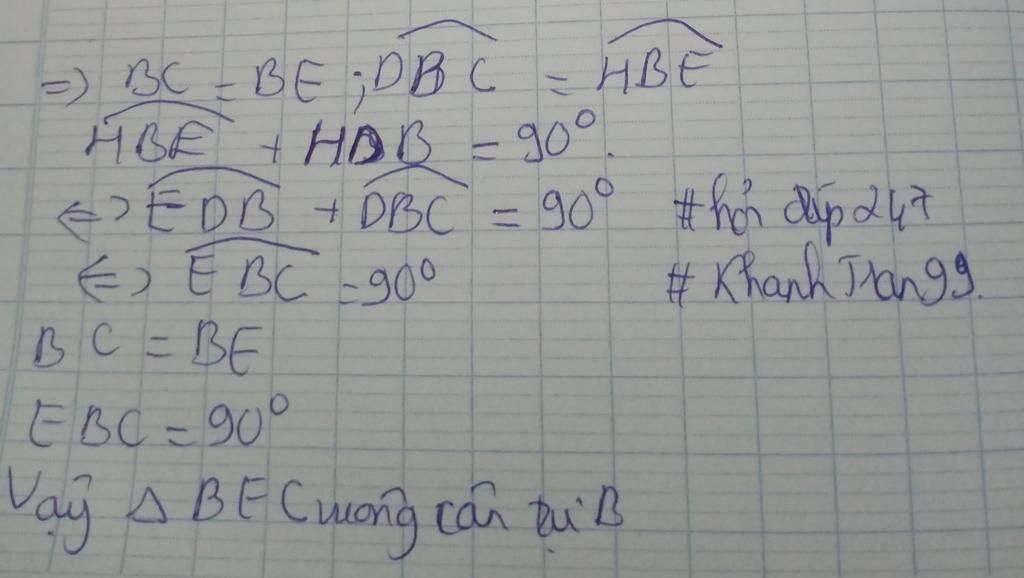 => BC = BE ; DBC = HBE
HBE + HDB = 90°.
<=> EDB + DBC = 90° # hỏi đáp 247
<=> EBC = 90° # Khanh Tran 99.
BC = BE
EBC = 90°
Vậy Δ BEC vuông cân tại B